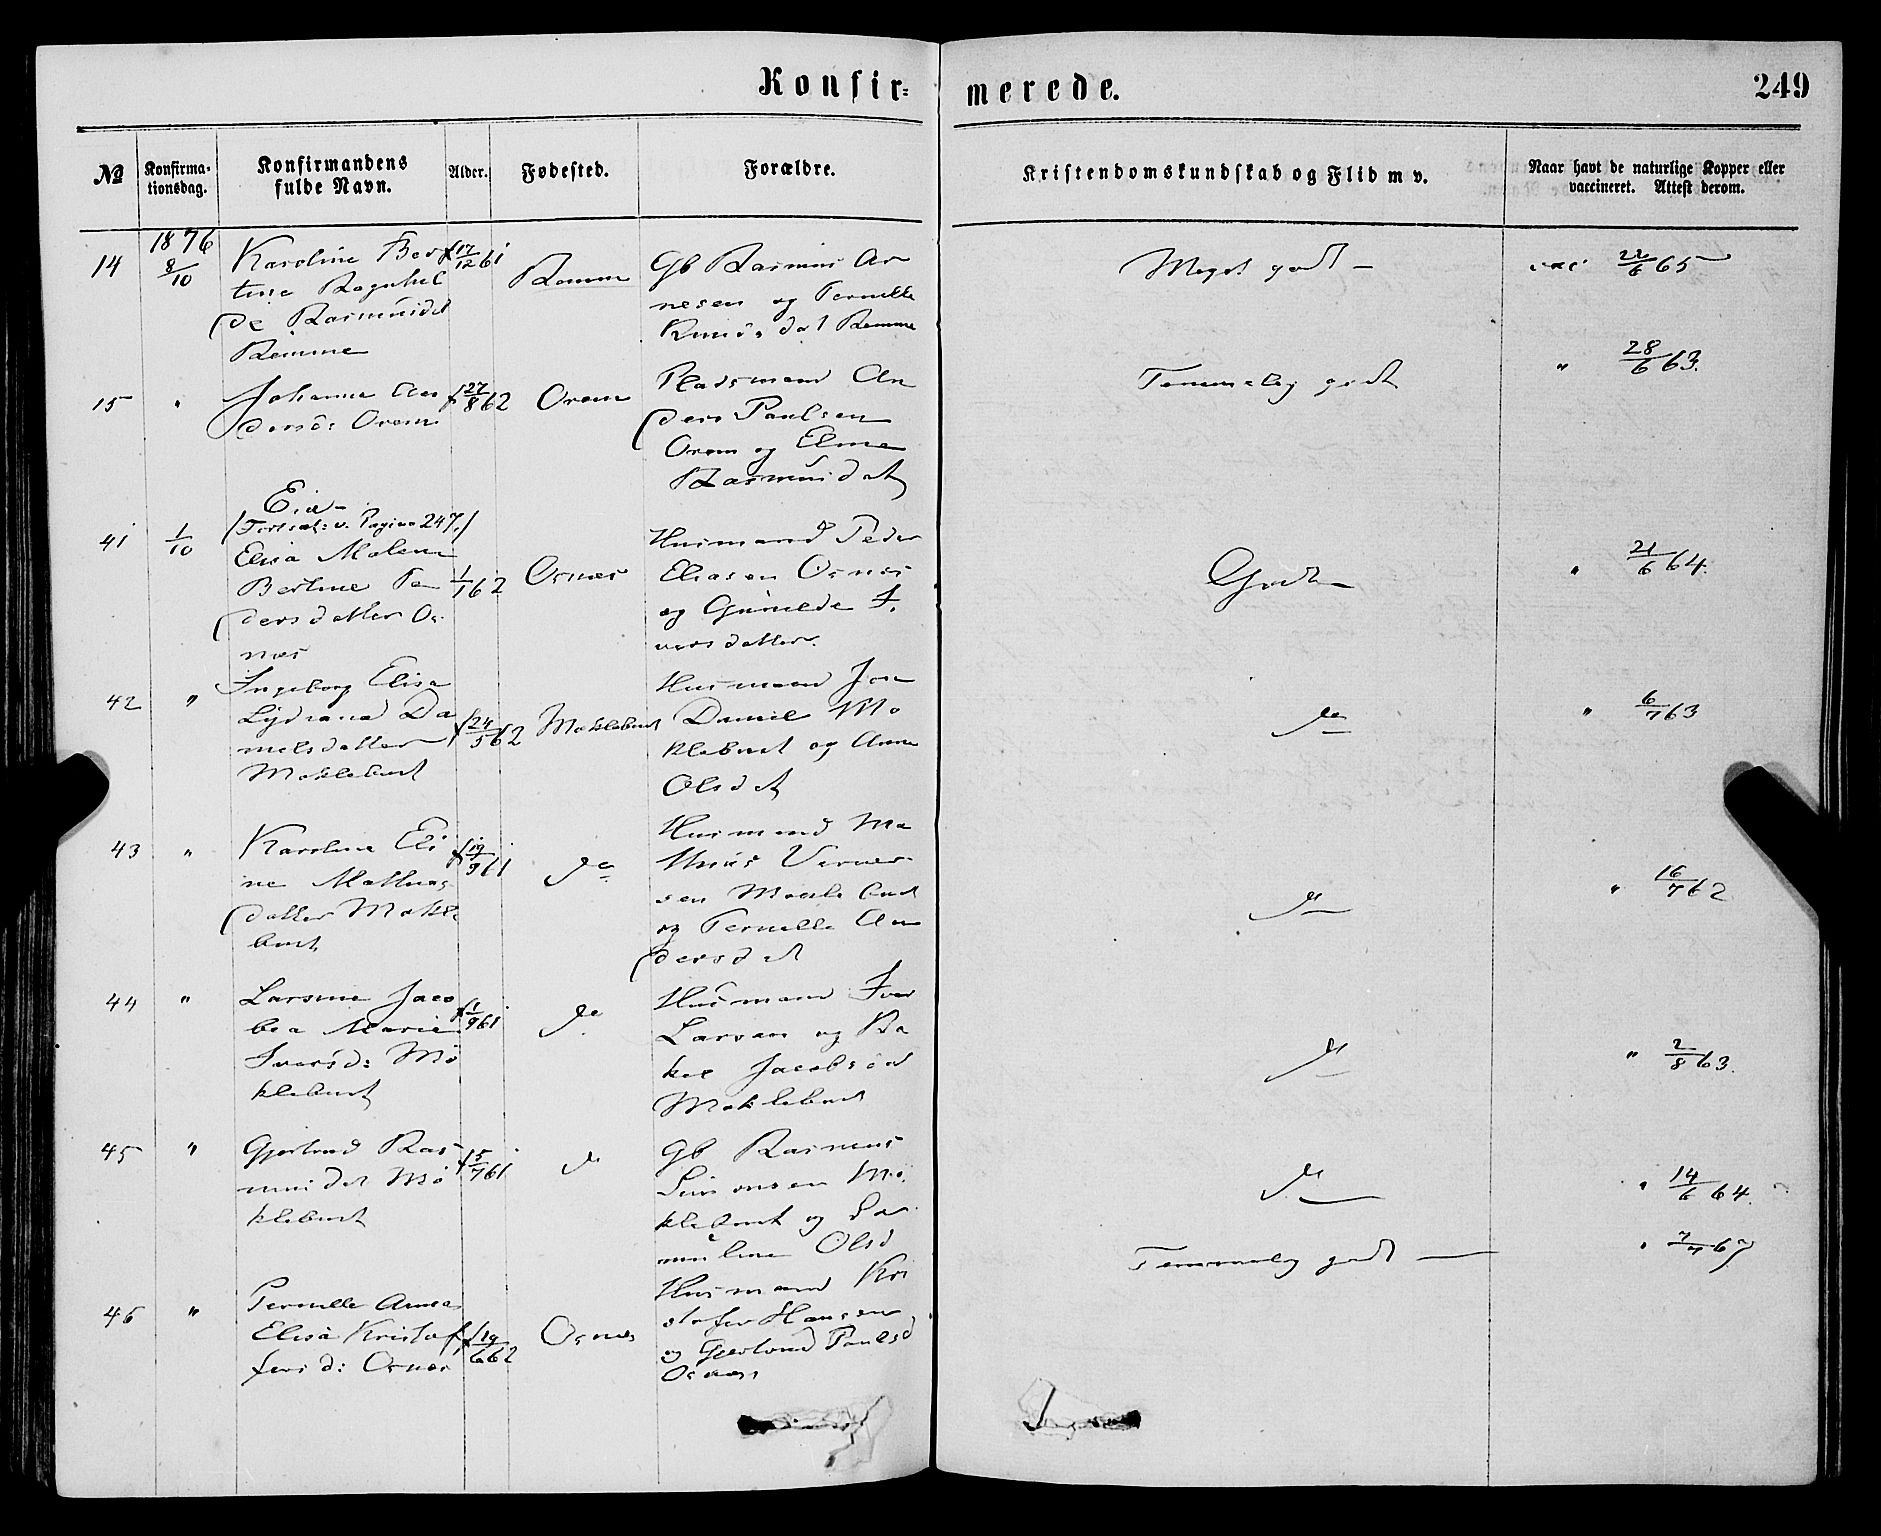 Konfir=
merede.
249
№
Konfirma-
tionsdag.
Konfirmandens
fulde Navn.
Alder.
Fødested.
Forældre.
Kristendomskundskab og Flid m v.
Naar havt de naturlige Kopper eller
vaccineret. Attest derom.
14
1876
8/10
Karoline Ber
tine Ragnhil
de Rasmusdt
Remme
f 17/12 61
Remme
Gb Rasmus Ar
nesen og Pernille
Knudsdat Remme
Meget godt
vac 22/6 65
15
"
Johanne An
dersd: Orem
f 27/8 62
Orem
Pladsmand An
ders Paulsen
Orem og Eline
Rasmusdat
Temmelig godt
" 28/6 63.
Eid
/Fortsat: v. Pagina 247./
41
1/10
Elisa Malene
Bertine Pe
dersdatter Os
nes
1/1 62
Osnes
Husmand Peder
Eliasen Osnes
og Gunilde I
versdatter.
Godt
" 21/6 64.
42
"
Ingeborg Elisa
Lydiana Da
nielsdatter
Moklebust
f 24/5 62
Moklebust
Husmand Jon
Daniel Mo
klebust og Anne
Olsdat
do
" 6/7 63
43
"
Karoline Eli
ne Mathias
datter Mokle
bust
f 19/9 61
do
Husmand Ma
thias Verner
sen Mokle bust
og Pernille An
dersdat
do
" 16/7 62
44
"
Larsine Jaco
bea Marie
Iversd: Mo
klebust
f 1/9 61
do
Husmand Iver
Larsen og Ra
kel Jacobsdat
Moklebust
do
" 2/8 63.
45
"
Gjertrud Ras
musdat Mo
klebust
f 5/7 61
do
Gb Rasmus
Simonsen Mo
klebust og
Olsd
do
" 14/6 64.
46
"
Pernille Annea
Elisa Kristof
fersd: Osnes
f 19/6 62
Osnes
Husmand Kri
stofer Hansen
og Gjertrud Paulsd
Osnes
Temmelig godt
" 7/7 67